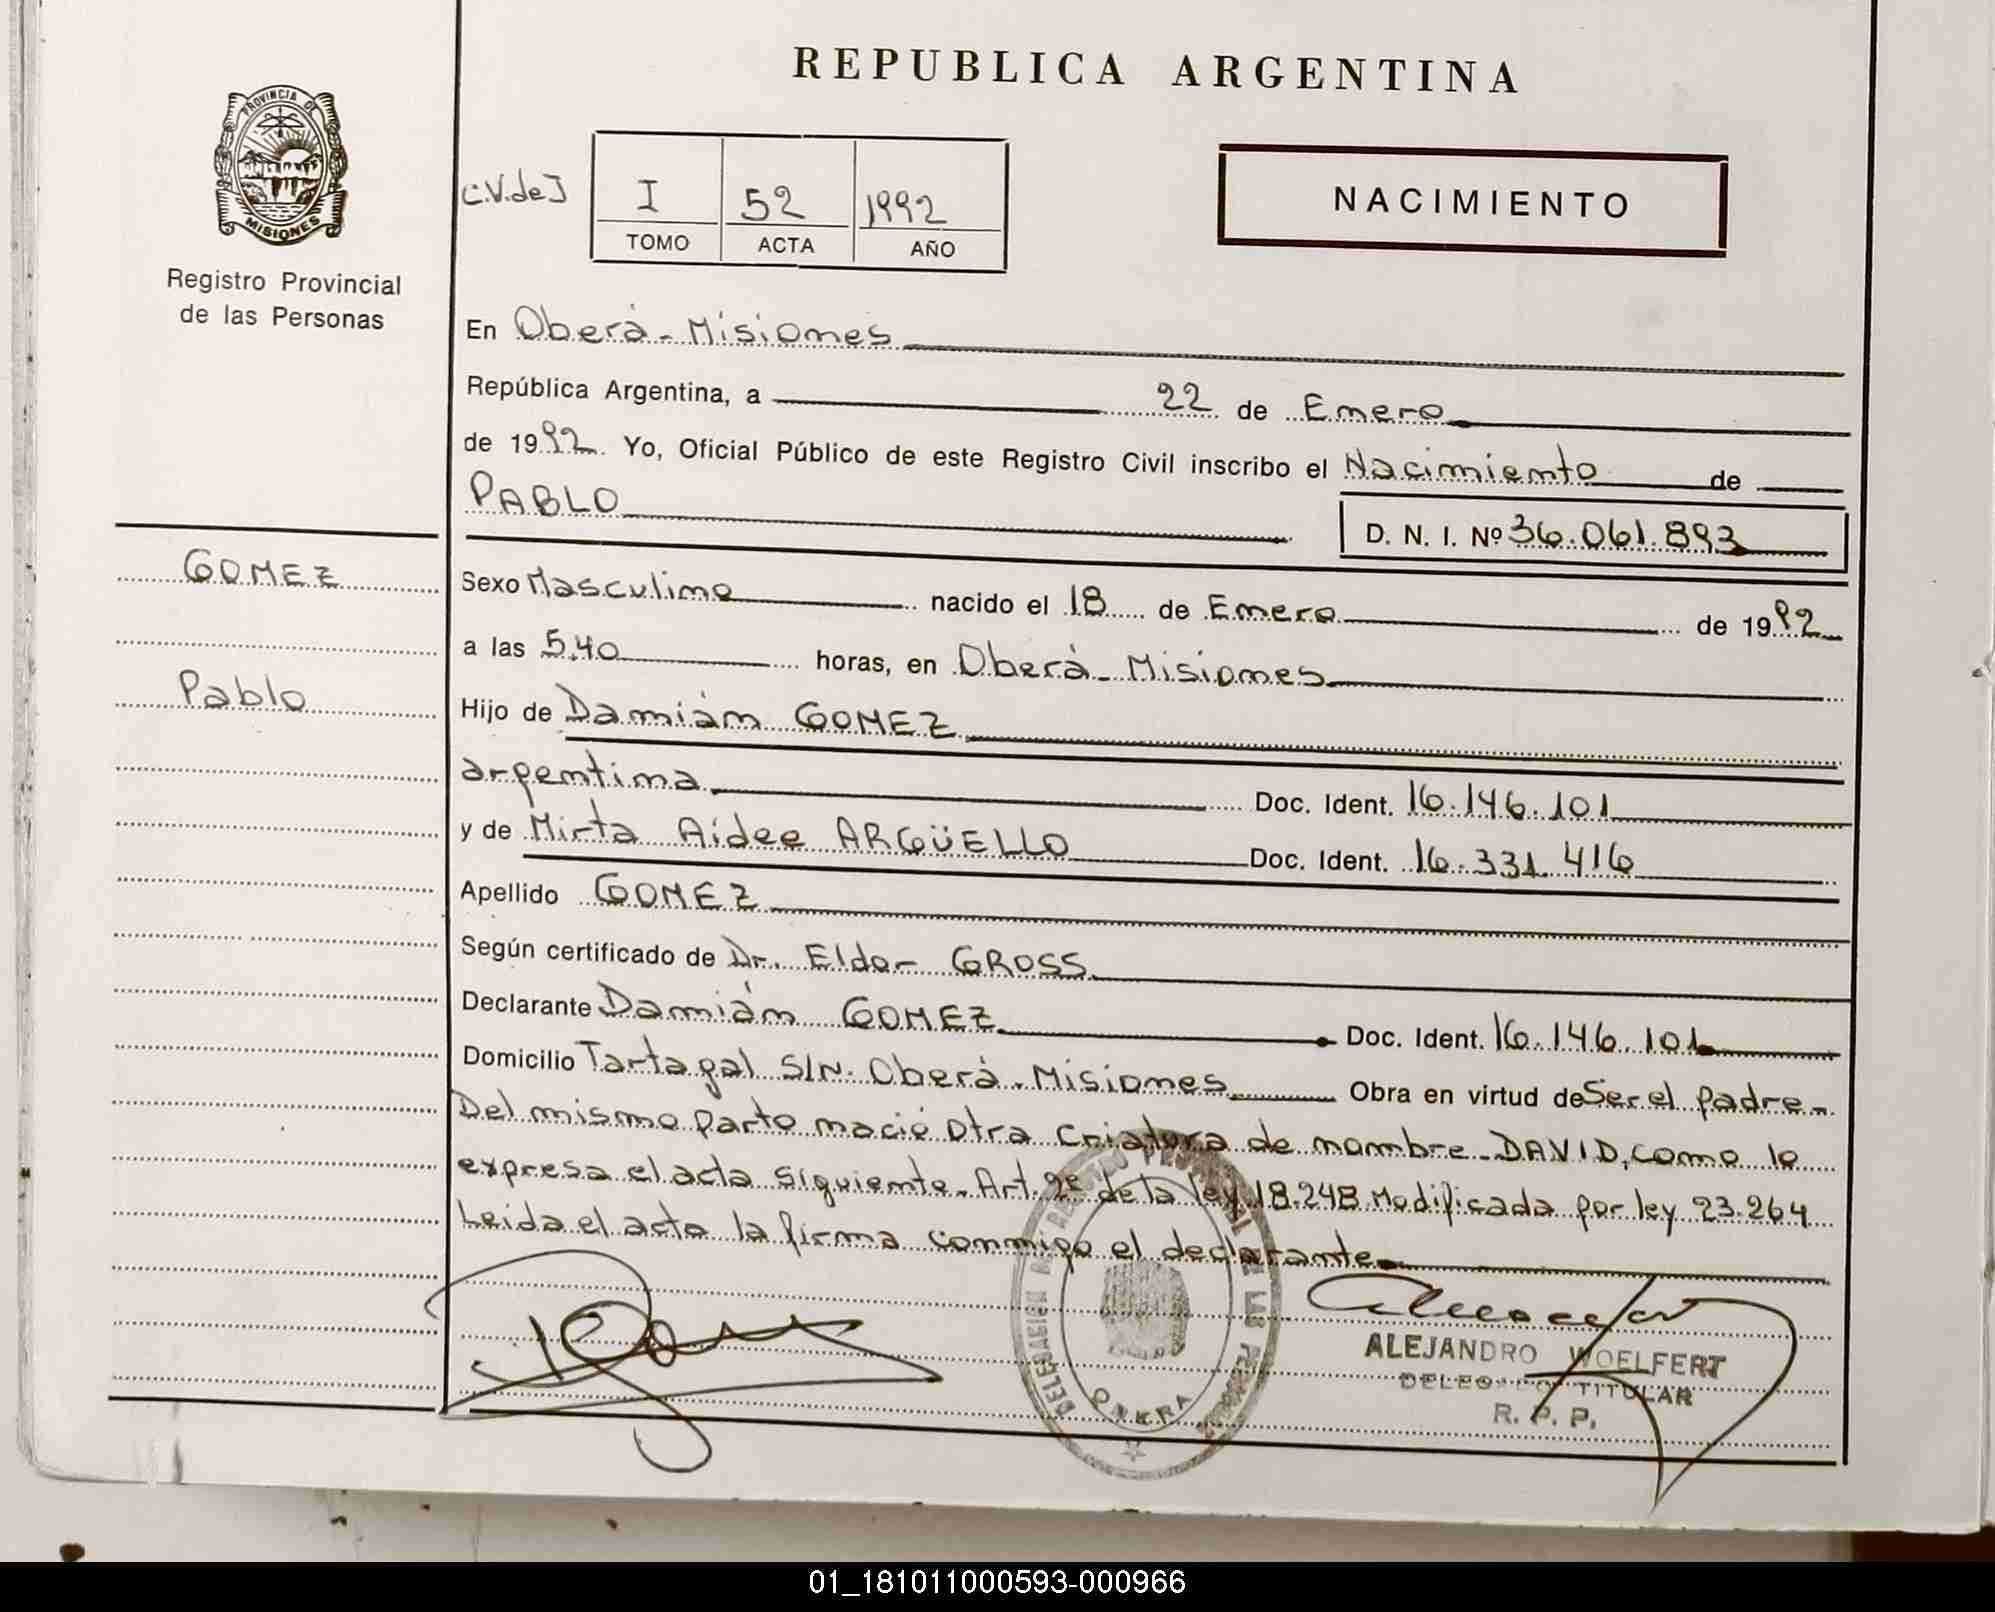 REPUBLICA ARGENTINA
PROVINCIA DE
MISIONES
Registro Provincial
de las Personas
C.V.deJ
I 52 1992
TOMO ACTA AÑO
NACIMIENTO
En Oberá - Misiones
República Argentina, a 22 de Enero
de 1992. Yo, Oficial Público de este Registro Civil inscribo el Nacimiento de
PABLO
D. N. I. Nº 36.061.893
GOMEZ
Pablo
Sexo Masculino nacido el 18 de Enero de 1992
a las 5,40 horas, en Oberá - Misiones
Hijo de Damián GOMEZ
argentina Doc. Ident. 16.146.101
y de Mirta Aidee ARGÜELLO Doc. Ident. 16.331.416
Apellido GOMEZ
Según certificado de Dr. Eldor GROSS
Declarante Damián GOMEZ Doc. Ident. 16.146.101
Domicilio Tartagal S/N. Oberá - Misiones Obra en virtud de Ser el padre -
Del mismo parto nació otra criatura de nombre - DAVID, como lo
expresa el acta siguiente. Art. 2º de la ley 18.248 Modificada por ley 23.264
Leida el acta la firma conmigo el declarante
ALEJANDRO WOELFERT
DELEGADO TITULAR
R. P. P.
01_181011000593-000966